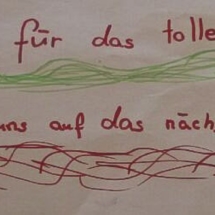 für das tolle
uns auf das näch